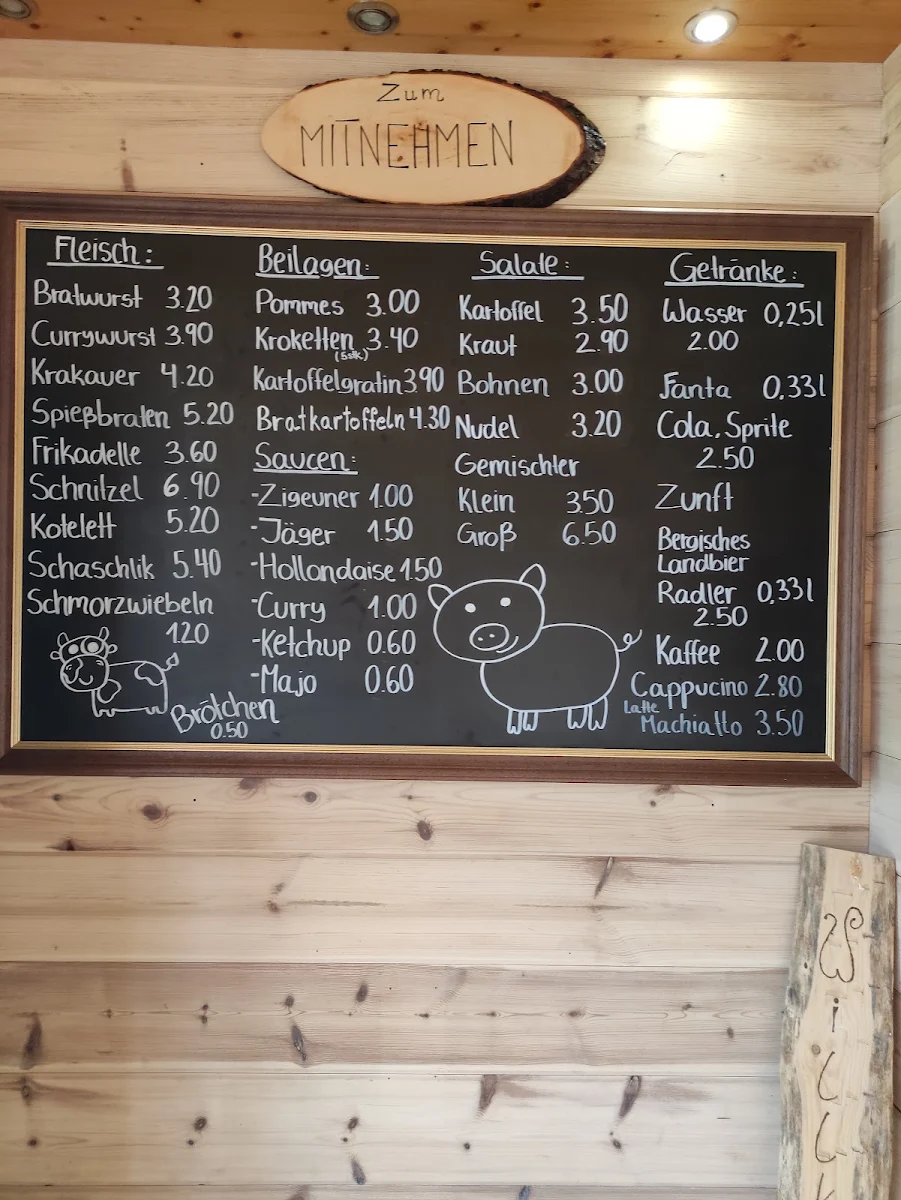 Zum
MITNEHMEN
Fleisch:
Bratwurst 3.20
Currywurst 3.90
Krakauer 4.20
Spießbraten 5.20
Frikadelle 3.60
Schnitzel 6.90
Kotelett 5.20
Schaschlik 5.40
Schmorzwiebeln
1.20
Brötchen
0.50
Beilagen:
Pommes 3.00
Kroketten 3.40
(5stk.)
Kartoffelgratin 3.90
Bratkartoffeln 4.30
Saucen:
-Zigeuner 1.00
-Jäger 1.50
-Hollandaise 1.50
-Curry 1.00
-Ketchup 0.60
-Majo 0.60
Salate:
Kartoffel 3.50
Kraut 2.90
Bohnen 3.00
Nudel 3.20
Gemischter
Klein 3.50
Groß 6.50
Getränke:
Wasser 0,25l
2.00
Fanta 0,33l
Cola, Sprite
2.50
Zunft
Bergisches
Landbier
Radler 0,33l
2.50
Kaffee 2.00
Cappucino 2.80
Latte
Machiatto 3.50
Will